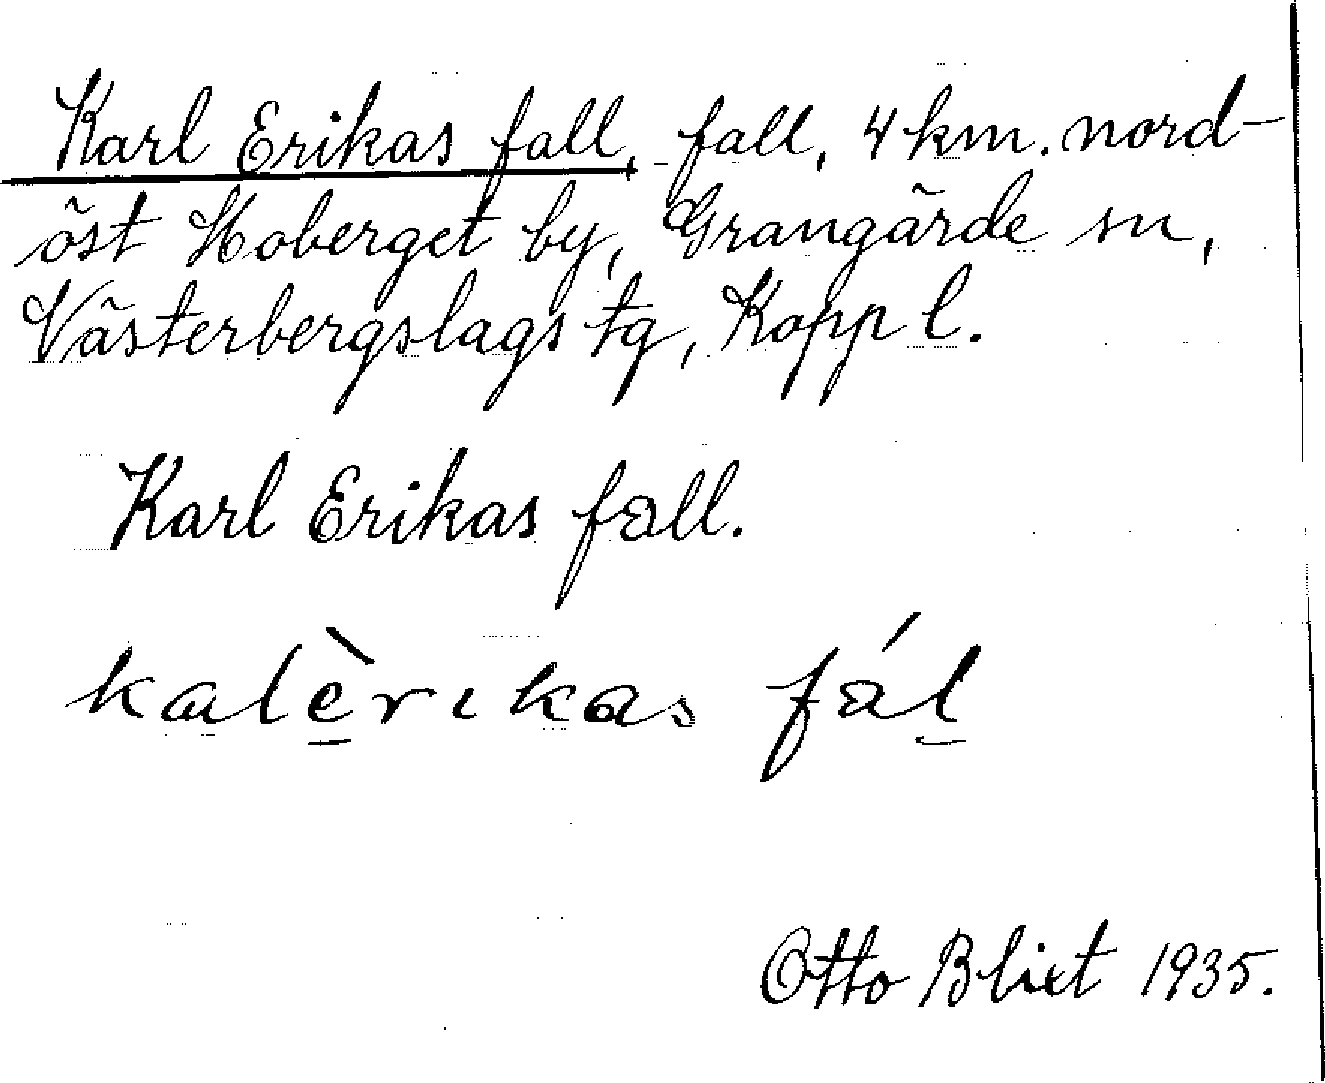 Karl Erikas fall, fall, 4 km. nord-
öst Hoberget by, Grangärde sn,
Västerbergslags tg, Kopp l.
Karl Erikas fall.
kalèrıkas fál
Otto Blixt 1935.